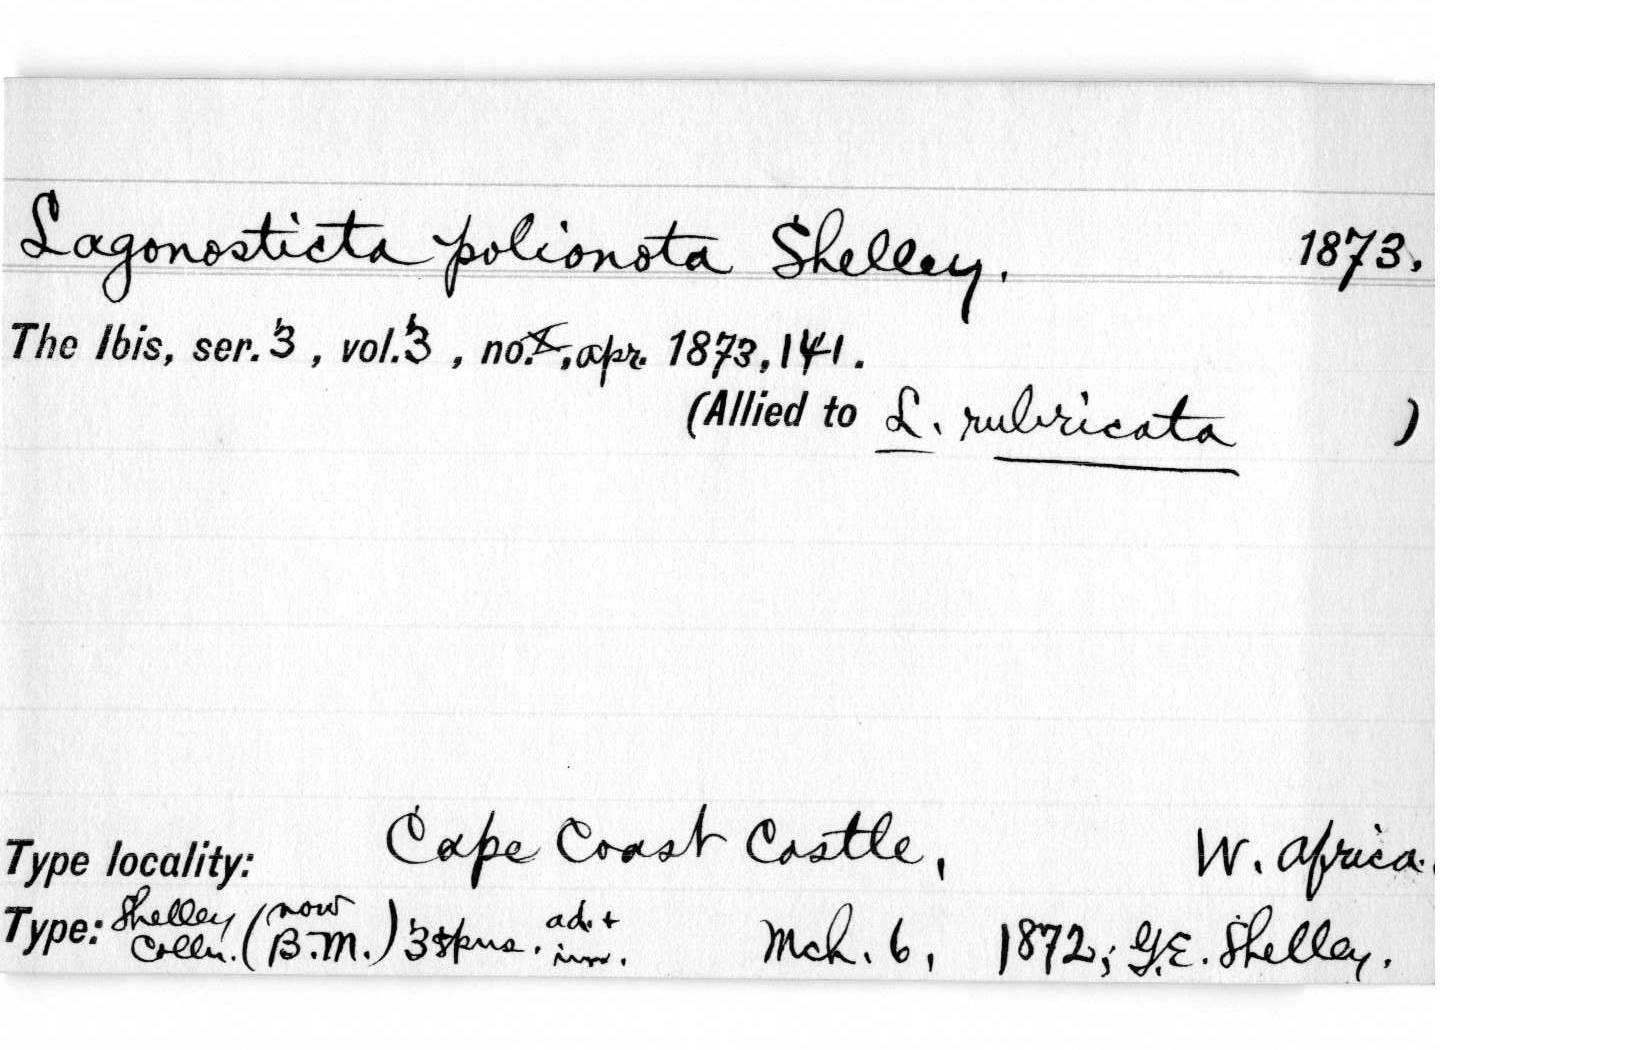 Lagonosticta polionota Shelley. 1873.
The Ibis, ser. 3, vol. 3, no. X, apr. 1873, 141.
(Allied to L. rubricata )
Type locality: Cape Coast Castle, W. Africa.
Type: Shelley Colln. (now B.M.) 3 spns. ad. + imm. Mch. 6, 1872; G.E. Shelley.